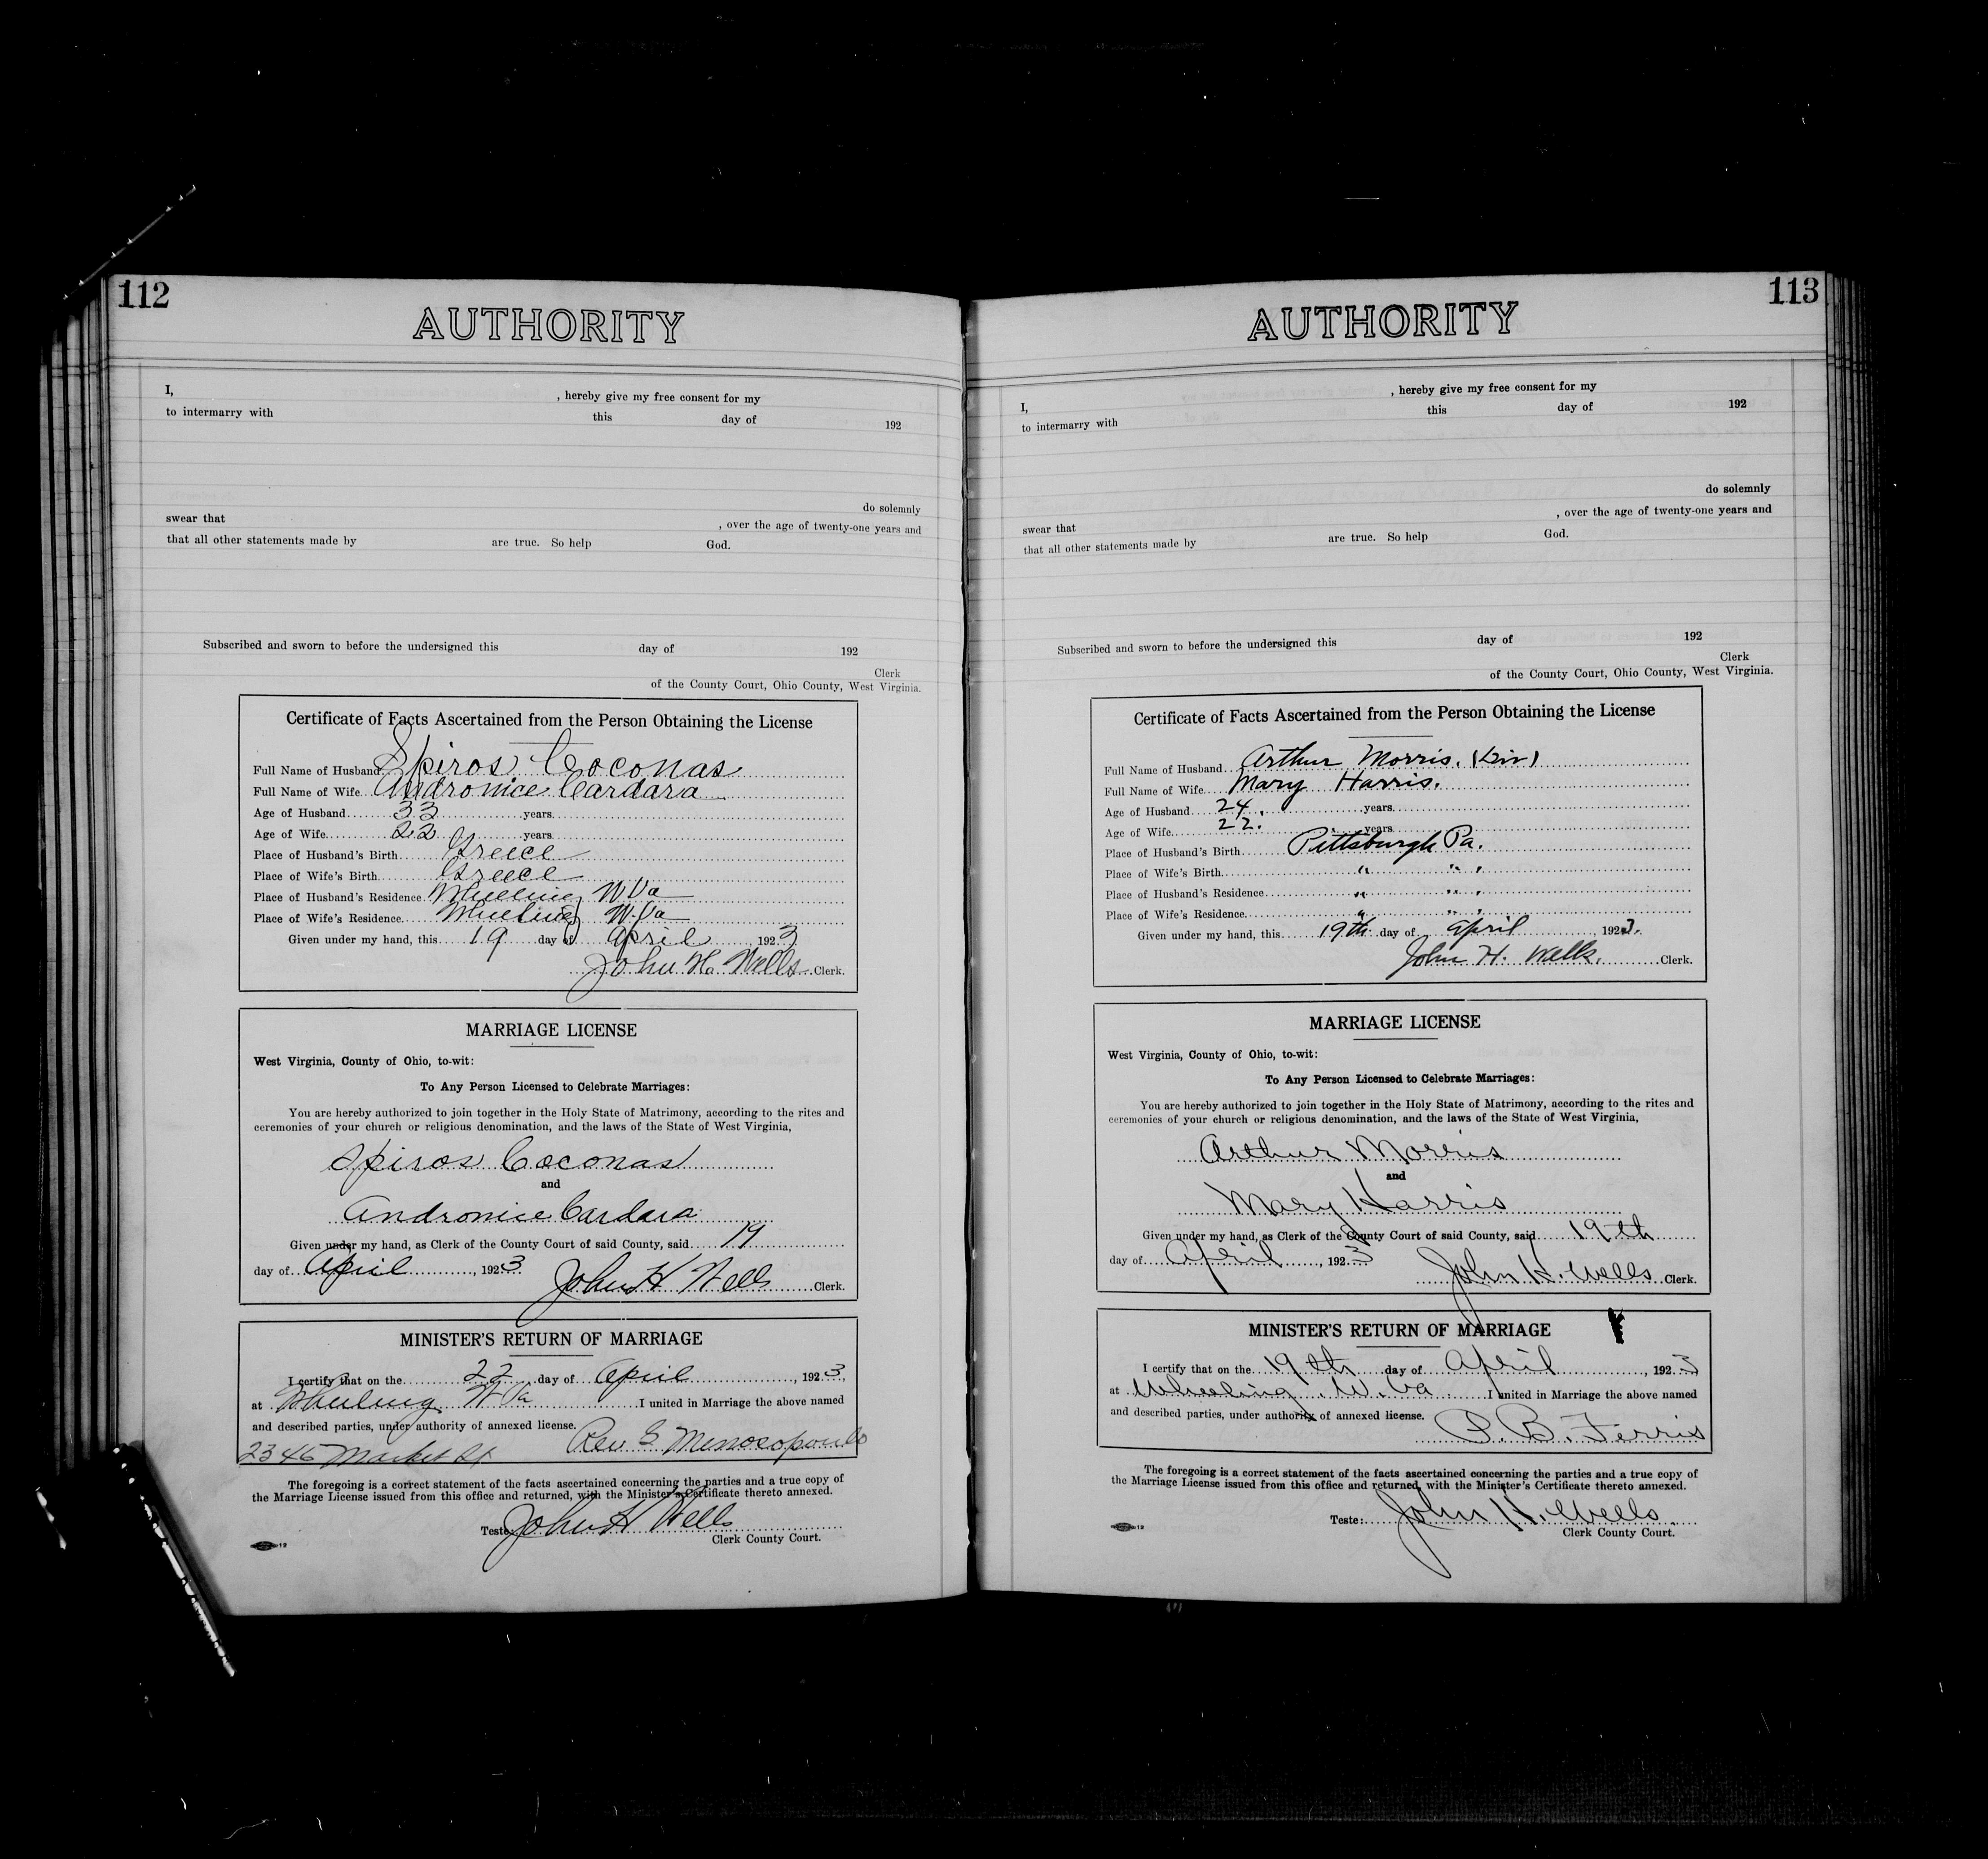 112
AUTHORITY
I, , hereby give my free consent for my
to intermarry with this day of 192
do solemnly
swear that , over the age of twenty-one years and
that all other statements made by are true. So help God.
Subscribed and sworn to before the undersigned this day of 192
Clerk
of the County Court, Ohio County, West Virginia.
Certificate of Facts Ascertained from the Person Obtaining the License
Full Name of Husband Spiros Coconas
Full Name of Wife Andronice Cardara
Age of Husband 33 years
Age of Wife 22 years
Place of Husband's Birth Greece
Place of Wife's Birth Greece
Place of Husband's Residence Wheeling W Va
Place of Wife's Residence Wheeling W. Va
Given under my hand, this 19 day of April 1923
John H. Wells Clerk.
MARRIAGE LICENSE
West Virginia, County of Ohio, to-wit:
To Any Person Licensed to Celebrate Marriages:
You are hereby authorized to join together in the Holy State of Matrimony, according to the rites and
ceremonies of your church or religious denomination, and the laws of the State of West Virginia,
Spiros Coconas
and
Andronice Cardara
Given under my hand, as Clerk of the County Court of said County, said 19
day of April, 1923 John H Wells Clerk.
MINISTER'S RETURN OF MARRIAGE
I certify that on the 22 day of April, 1923,
at Wheeling W Va I united in Marriage the above named
and described parties, under authority of annexed license.
2346 Market St Rev
The foregoing is a correct statement of the facts ascertained concerning the parties and a true copy of
the Marriage License issued from this office and returned, with the Minister's Certificate thereto annexed.
Teste: John H Wells
Clerk County Court.
12
113
AUTHORITY
I, , hereby give my free consent for my
to intermarry with this day of 192
do solemnly
swear that , over the age of twenty-one years and
that all other statements made by are true. So help God.
Subscribed and sworn to before the undersigned this day of 192
Clerk
of the County Court, Ohio County, West Virginia.
Certificate of Facts Ascertained from the Person Obtaining the License
Full Name of Husband Arthur Morris. (Div)
Full Name of Wife Mary Harris.
Age of Husband 24. years
Age of Wife 22. years
Place of Husband's Birth Pittsburgh Pa.
Place of Wife's Birth " " "
Place of Husband's Residence " " "
Place of Wife's Residence " " "
Given under my hand, this 19th day of April, 1923.
John H. Wells. Clerk.
MARRIAGE LICENSE
West Virginia, County of Ohio, to-wit:
To Any Person Licensed to Celebrate Marriages:
You are hereby authorized to join together in the Holy State of Matrimony, according to the rites and
ceremonies of your church or religious denomination, and the laws of the State of West Virginia,
Arthur Morris
and
Mary Harris
Given under my hand, as Clerk of the County Court of said County, said 19th
day of April, 1923 John H. Wells Clerk.
MINISTER'S RETURN OF MARRIAGE
I certify that on the 19th day of April, 1923
at Wheeling, W. Va I united in Marriage the above named
and described parties, under authority of annexed license.
P. B. Ferris
The foregoing is a correct statement of the facts ascertained concerning the parties and a true copy of
the Marriage License issued from this office and returned, with the Minister's Certificate thereto annexed.
Teste: John H. Wells.
Clerk County Court.
12